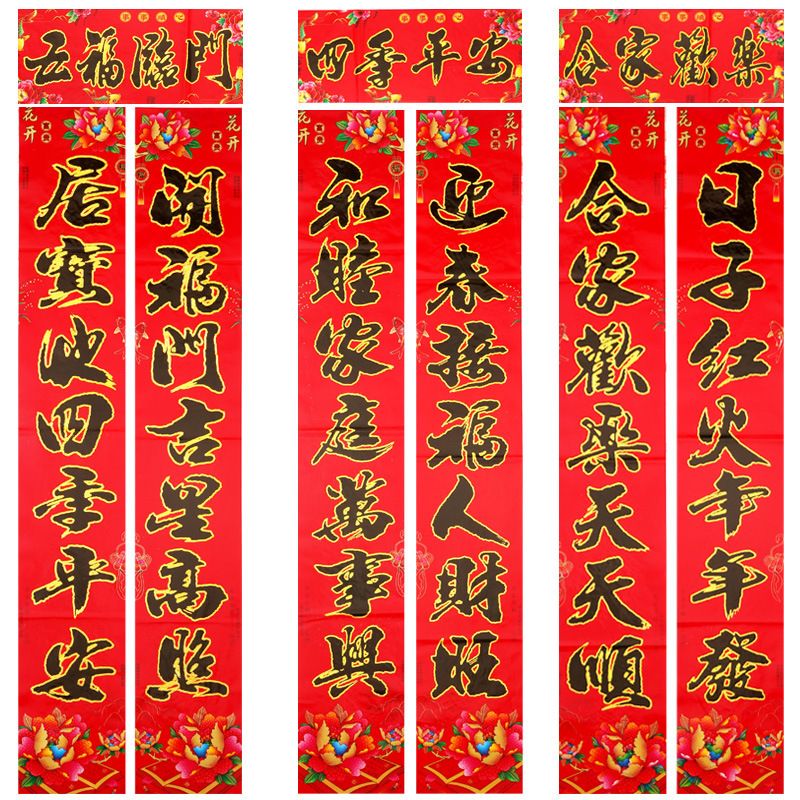 五福臨門
花开
居寶地四季平安
花开
開福門吉星高照
四季平安
花开
和睦家庭萬事興
花开
迎春接福人財旺
合家歡樂
花开
合家歡樂天天順
花开
日子紅火年年發